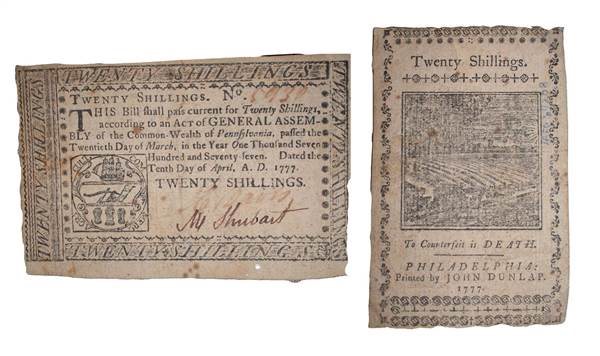 TWENTY SHILLINGS
TWENTY SHILLINGS. No.
THIS Bill shall pass current for Twenty Shillings,
according to an Act of GENERAL ASSEM-
BLY of the Common-Wealth of Pennsylvania, passed the
Twentieth Day of March, in the Year One Thousand Seven
Hundred and Seventy-seven. Dated the
Tenth Day of April, A. D. 1777.
TWENTY SHILLINGS.
M Shubart
TWENTY SHILLINGS
TWENTY SHILLINGS
TWENTY SHILLINGS
Twenty Shillings.
To Counterfeit is DEATH.
PHILADELPHIA:
Printed by JOHN DUNLAP.
1777.